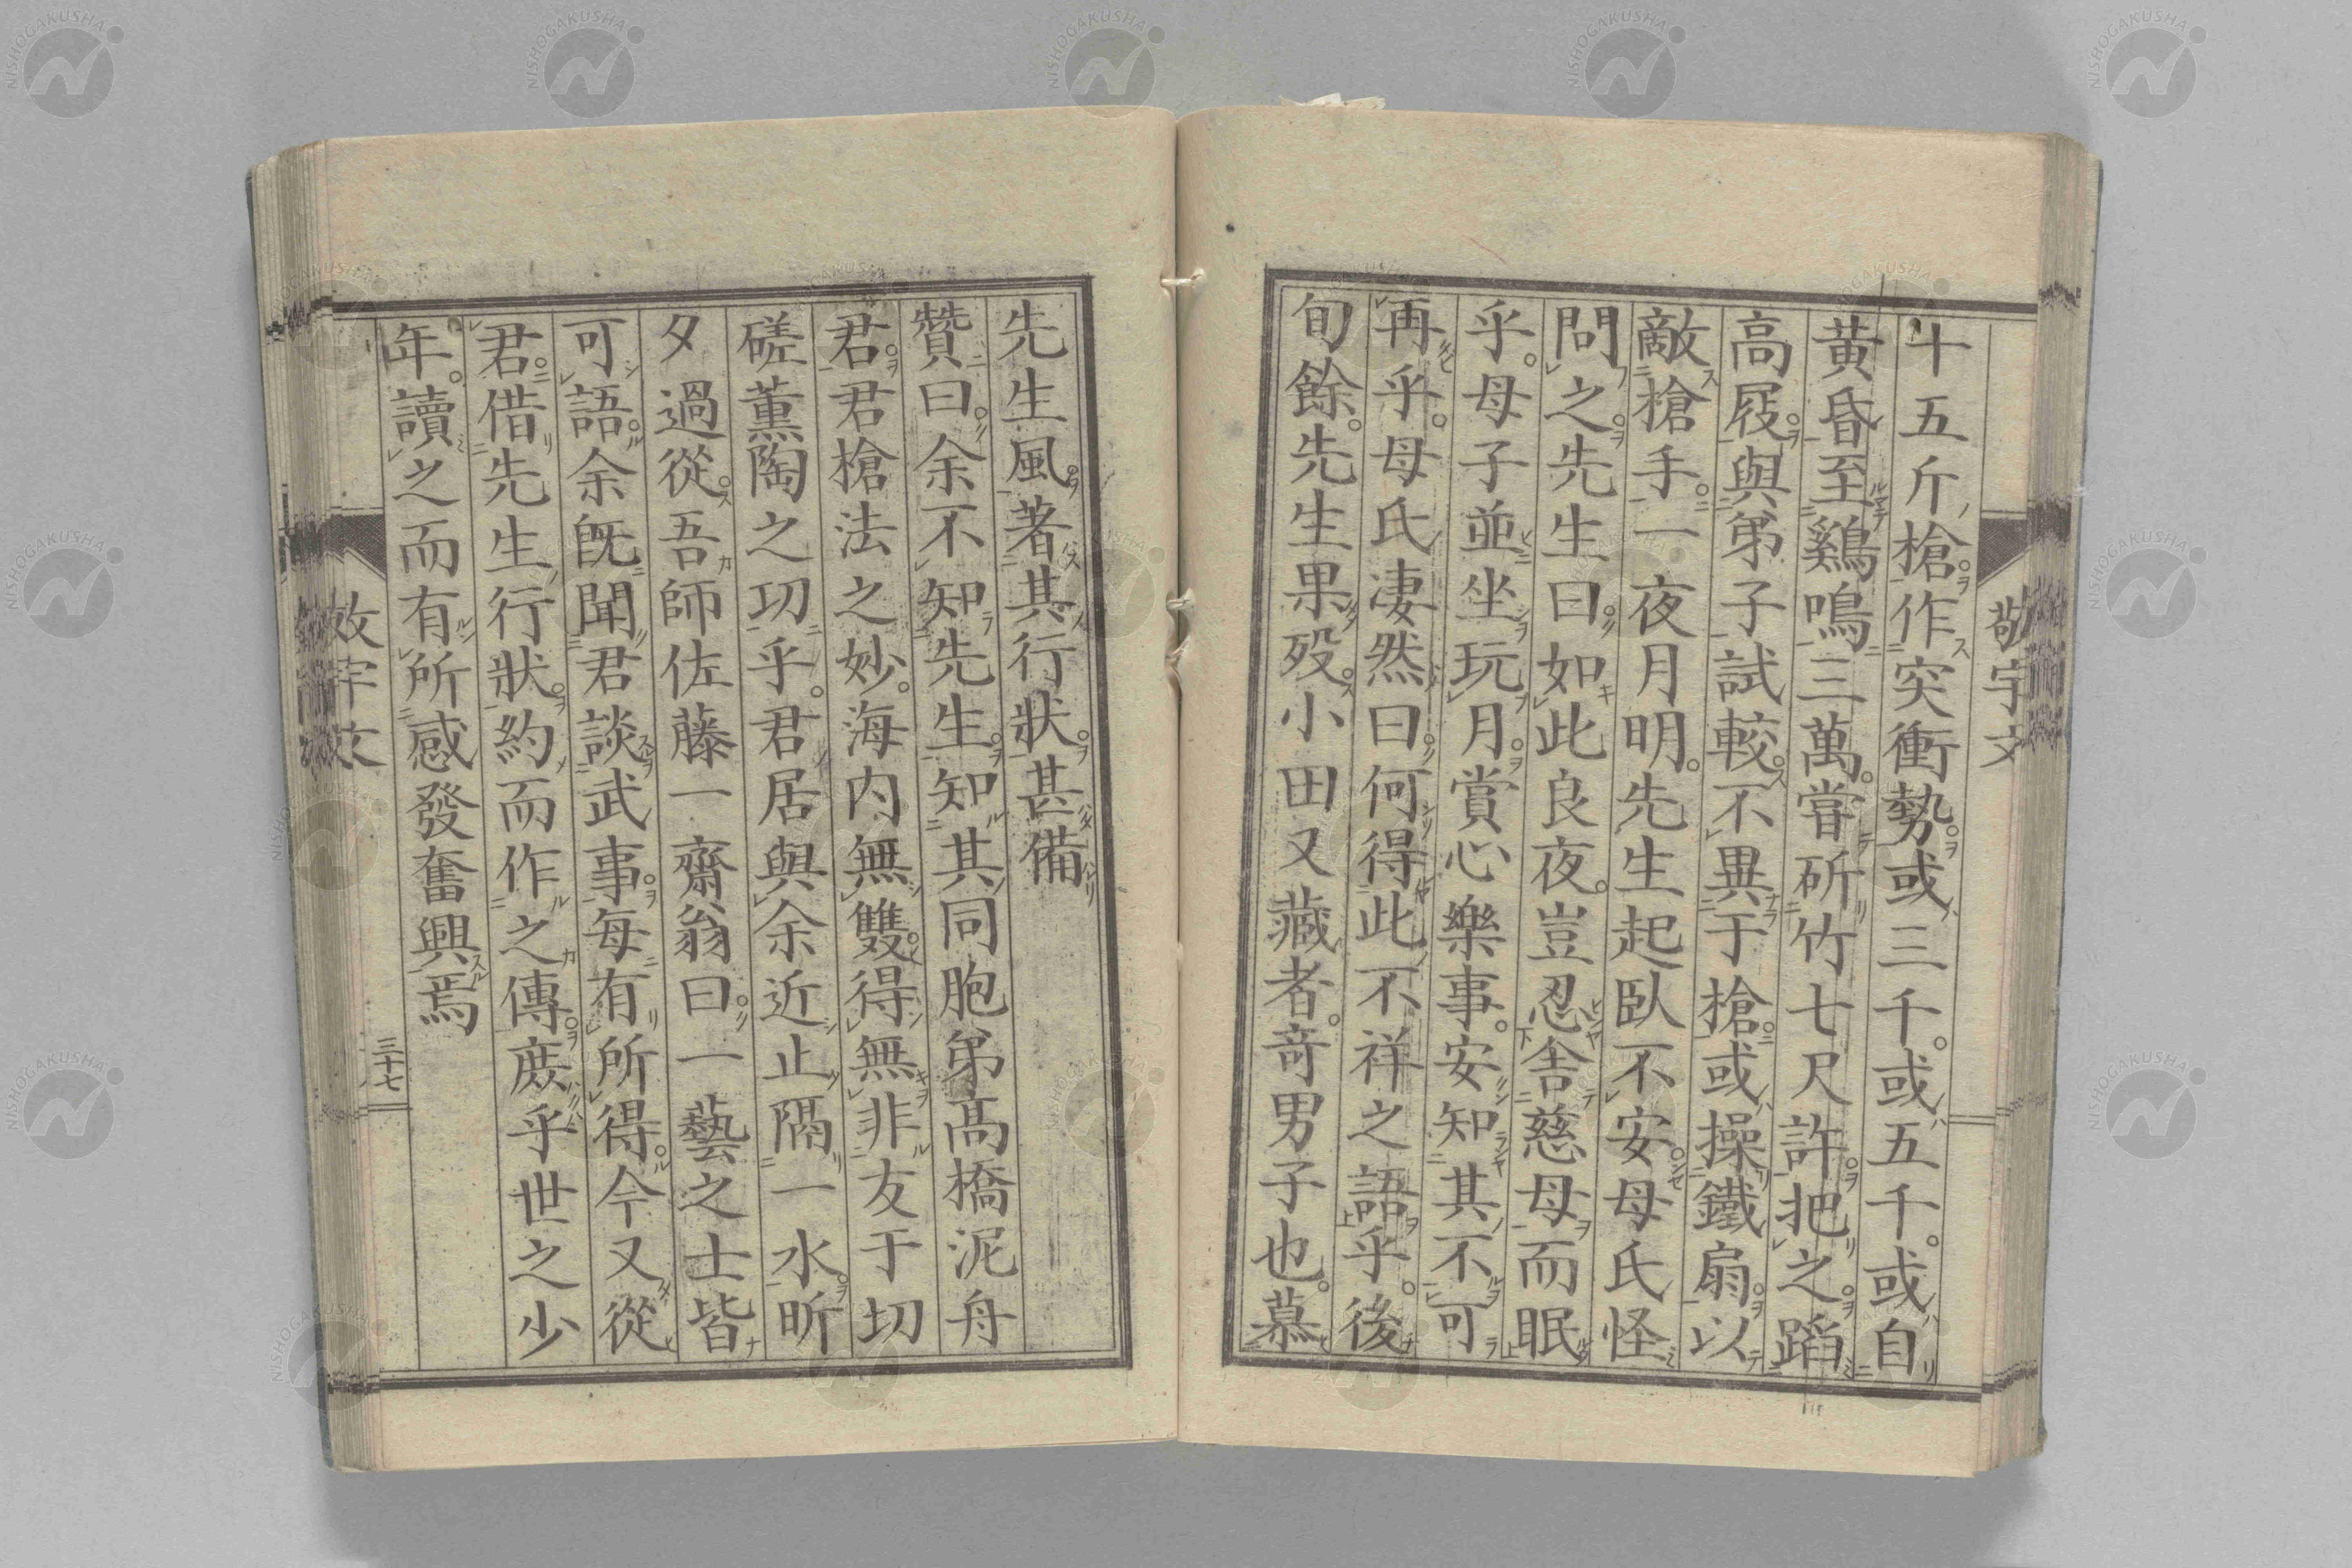 敬宇文
十五斤槍作突衝勢或三千。或五千。或自
黄昏至鷄鳴三萬。嘗斫竹七尺許把之蹈
高屐與弟子試較。不異于槍或操鐵扇以
敵槍手一夜月明。先生起臥不安母氏怪
問之先生曰如此良夜。豈忍舍慈母而眠
乎。母子並坐玩月賞心樂事。安知其不可
再乎。母氏凄然曰何得此不祥之語乎。後
旬餘。先生果歿小田又藏者。奇男子也。慕
先生風著其行狀甚備
贊曰余不知先生知其同胞弟高橋泥舟
君君槍法之妙。海内無雙得無非友于切
磋薫陶之功乎。君居與余近止隔一水昕
夕過從吾師佐藤一齋翁曰一藝之士皆
可語余既聞君談武事每有所得今又從
君借先生行狀約而作之傳庶乎世之少
年。讀之而有所感發奮興焉
敬宇文
三十七
NISHOGAKUSHA